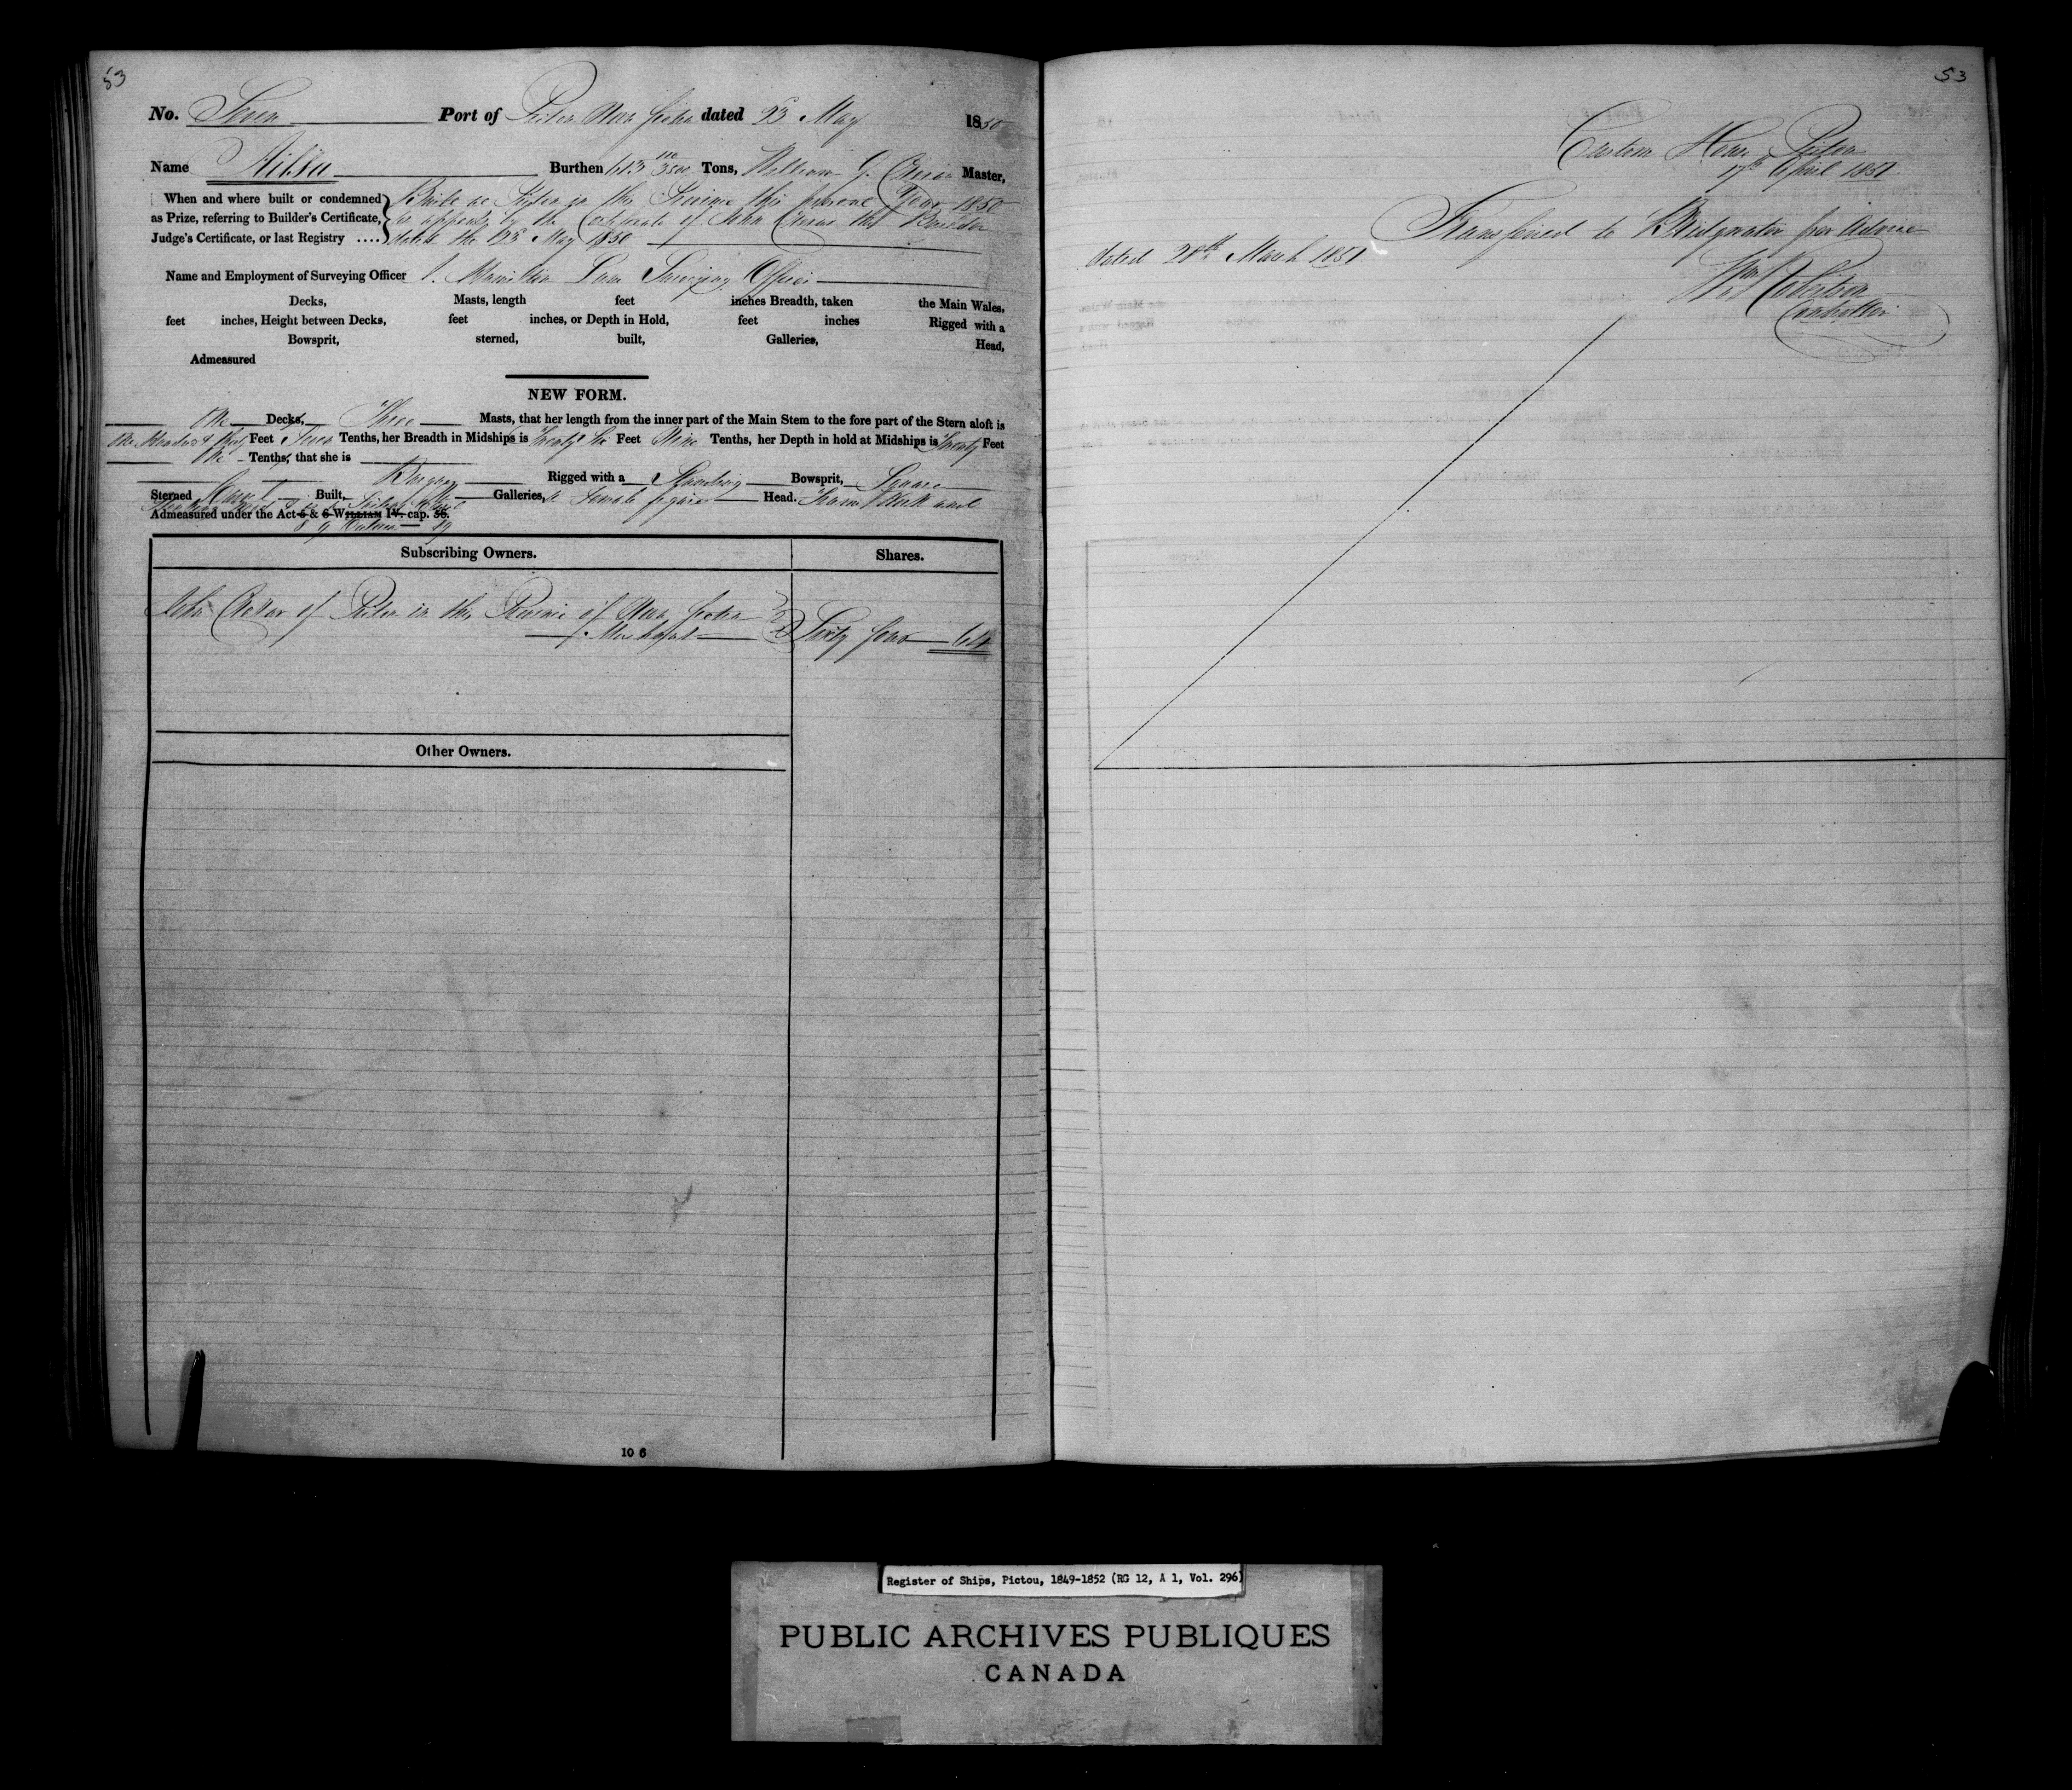 53
No. Seven Port of Pictou Nova Scotia dated 23 May 1850
Name Ailsa Burthen 613 Tons, William G. Master,
When and where built or condemned as Prize, referring to Builder's Certificate, Judge's Certificate, or last Registry .... Built at Pictou in the Province this present Year 1850
as appears by the Certificate of John the Builder
dated the 23 May 1850
Name and Employment of Surveying Officer Surveying Officer
Decks, Masts, length feet inches Breadth, taken the Main Wales,
feet inches, Height between Decks, feet inches, or Depth in Hold, feet inches Rigged with a
Bowsprit, sterned, built, Galleries, Head,
Admeasured
NEW FORM.
One Decks, Three Masts, that her length from the inner part of the Main Stem to the fore part of the Stern aloft is
One Hundred & Feet Seven Tenths, her Breadth in Midships is Twenty Six Feet Nine Tenths, her Depth in hold at Midships is Twenty Feet
One Tenths, that she is
Rigged with a Standing Bowsprit, Square
Sterned Carvel Built, No Galleries, a Female figure Head.
Admeasured under the Act 5 & 6 WILLIAM IV. cap. 56.
8 9 Victoria 89
Subscribing Owners. Shares.
John of Pictou in the Province of Nova Scotia
Merchant Sixty four 64
Other Owners.
10 6
53
Custom House Pictou
17th April 1851
Transferred to Bridgwater per advice
dated 28th March 1851
Controller
Register of Ships, Pictou, 1849-1852 (RG 12, A 1, Vol. 296)
PUBLIC ARCHIVES PUBLIQUES
CANADA